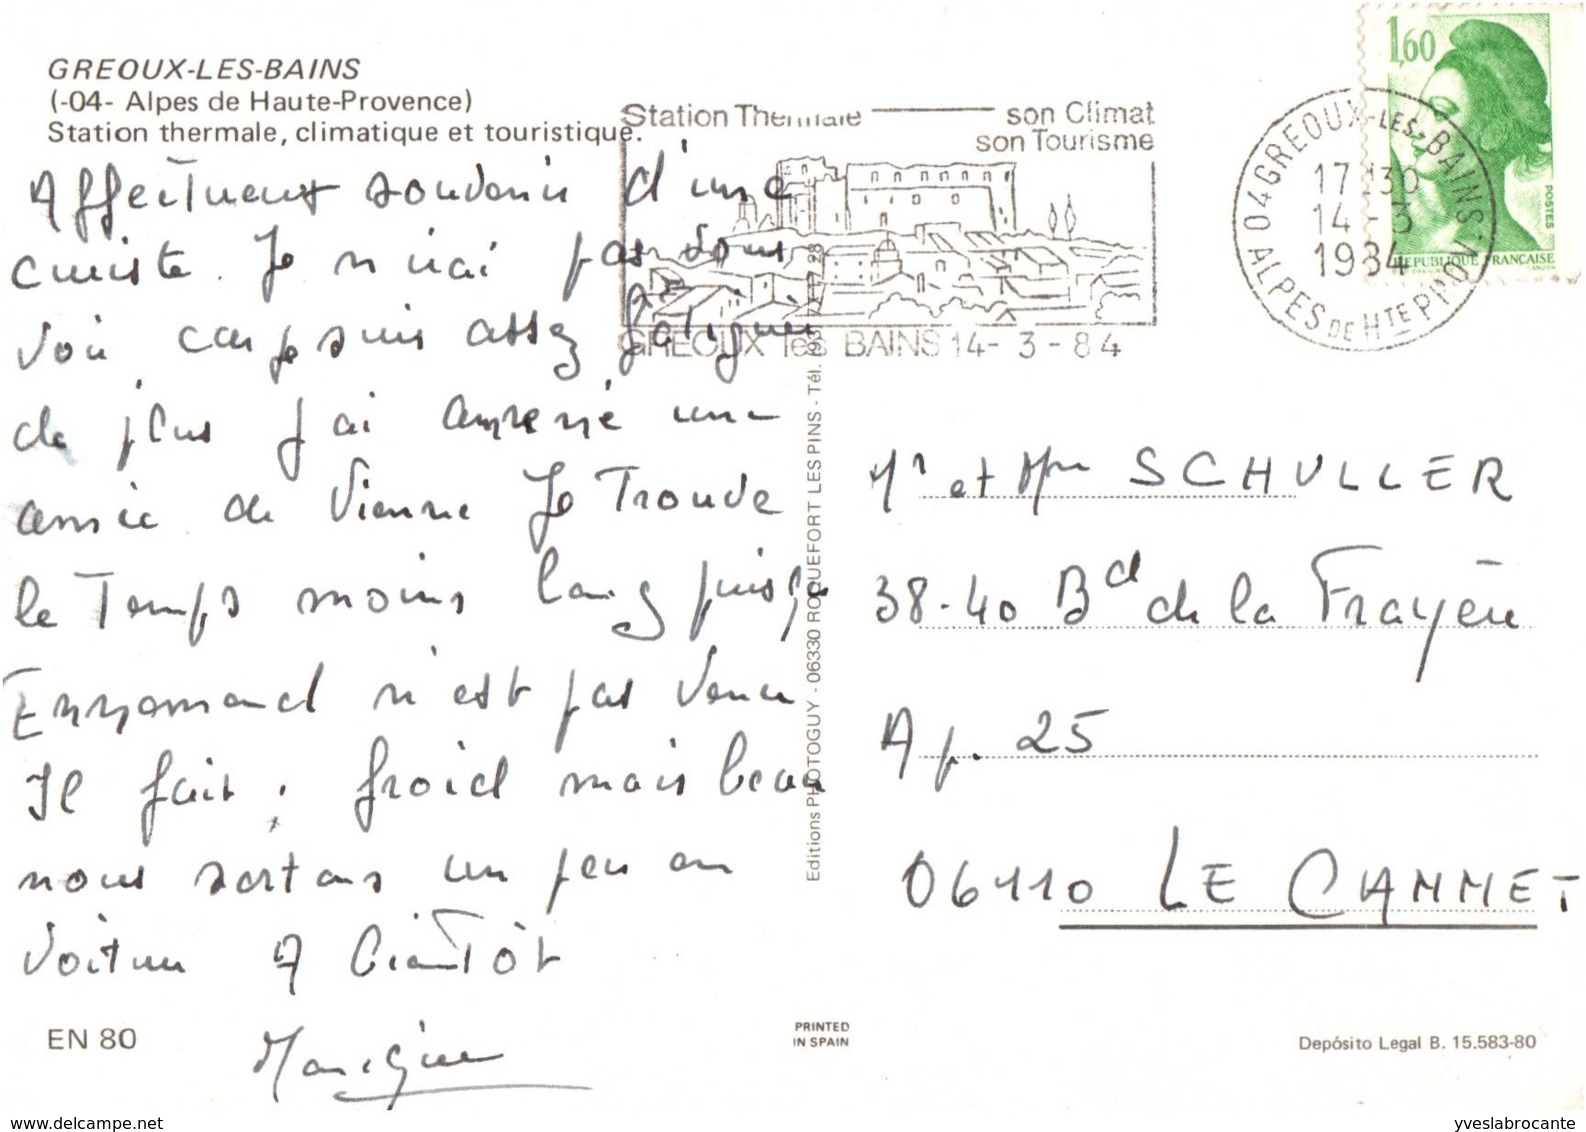 GREOUX-LES-BAINS
(-04- Alpes de Haute-Provence)
Station thermale, climatique et touristique.
Affectueux souvenir d'une
curiste. Je n'irai pas vous
voir car je suis assez fatiguée
de plus j'ai amené une
amie de Vienne Je Trouve
le Temps moins long puisq
n'est pas venu
Il fait froid mais beau
nous sortons un peu en
voiture A bientôt
EN 80
Station Thermale son Climat
son Tourisme
GREOUX les BAINS 14-3-84
04 GREOUX-LES-BAINS
17H30
14-3
1984
ALPES DE HTE PROV.
1,60
POSTES
REPUBLIQUE FRANCAISE
Editions PHOTOGUY - 06330 ROQUEFORT LES PINS - Tél. (93) 77 17 28
Mr et Mme SCHULLER
38-40 Bd de la Frayère
Ap. 25
06110 LE CANNET
PRINTED
IN SPAIN
Depósito Legal B. 15.583-80
www.delcampe.net
yveslabrocante